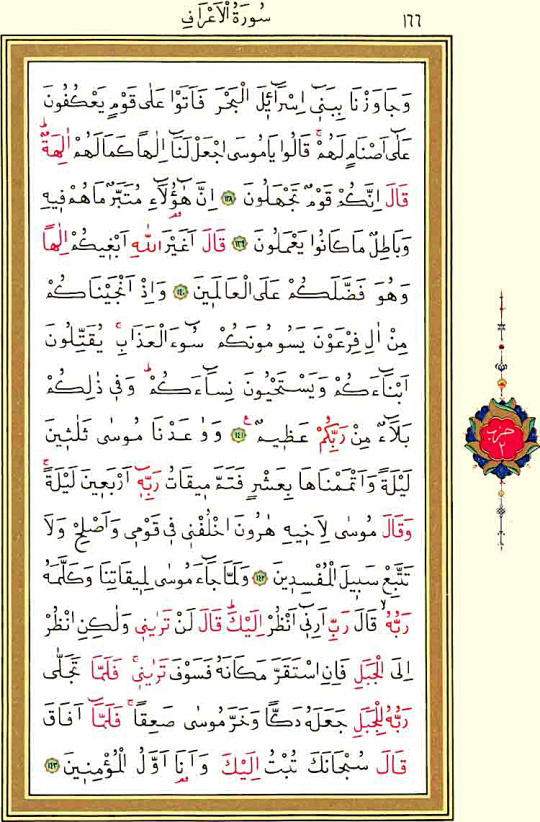 سُورَةُ الْاَعْرَافِ
١٦٦
وَجَاوَزْنَا بِبَنٖٓي اِسْرَٓائٖلَ الْبَحْرَ فَاَتَوْا عَلٰى قَوْمٍ يَعْكُفُونَ
عَلٰٓى اَصْنَامٍ لَهُمْۚ قَالُوا يَامُوسَى اجْعَلْ لَنَٓا اِلٰهًا كَمَا لَهُمْ اٰلِهَةٌۜ
قَالَ اِنَّكُمْ قَوْمٌ تَجْهَلُونَ ﴿١٣٨﴾ اِنَّ هٰٓؤُ۬لَٓاءِ مُتَبَّرٌ مَا هُمْ فٖيهِ
وَبَاطِلٌ مَا كَانُوا يَعْمَلُونَ ﴿١٣٩﴾ قَالَ اَغَيْرَ اللّٰهِ اَبْغٖيكُمْ اِلٰهًا
وَهُوَ فَضَّلَكُمْ عَلَى الْعَالَمٖينَ ﴿١٤٠﴾ وَاِذْ اَنْجَيْنَاكُمْ
مِنْ اٰلِ فِرْعَوْنَ يَسُومُونَكُمْ سُٓوءَ الْعَذَابِۚ يُقَتِّلُونَ
اَبْنَٓاءَكُمْ وَيَسْتَحْيُونَ نِسَٓاءَكُمْۜ وَفٖي ذٰلِكُمْ
بَلَٓاءٌ مِنْ رَبِّكُمْ عَظٖيمٌ۟ ﴿١٤١﴾ وَوٰعَدْنَا مُوسٰى ثَلٰثٖينَ
لَيْلَةً وَاَتْمَمْنَاهَا بِعَشْرٍ فَتَمَّ مٖيقَاتُ رَبِّهٖٓ اَرْبَعٖينَ لَيْلَةًۚ
وَقَالَ مُوسٰى لِاَخٖيهِ هٰرُونَ اخْلُفْنٖي فٖي قَوْمٖي وَاَصْلِحْ وَلَا
تَتَّبِعْ سَبٖيلَ الْمُفْسِدٖينَ ﴿١٤٢﴾ وَلَمَّا جَٓاءَ مُوسٰى لِمٖيقَاتِنَا وَكَلَّمَهُ
رَبُّهُۙ قَالَ رَبِّ اَرِنٖٓي اَنْظُرْ اِلَيْكَۜ قَالَ لَنْ تَرٰينٖي وَلٰكِنِ انْظُرْ
اِلَى الْجَبَلِ فَاِنِ اسْتَقَرَّ مَكَانَهُ فَسَوْفَ تَرٰينٖيۚ فَلَمَّا تَجَلّٰى
رَبُّهُ لِلْجَبَلِ جَعَلَهُ دَكًّا وَخَرَّ مُوسٰى صَعِقًاۚ فَلَمَّٓا اَفَاقَ
قَالَ سُبْحَانَكَ تُبْتُ اِلَيْكَ وَاَنَا۬ اَوَّلُ الْمُؤْمِنٖينَ ﴿١٤٣﴾
حزب
٢